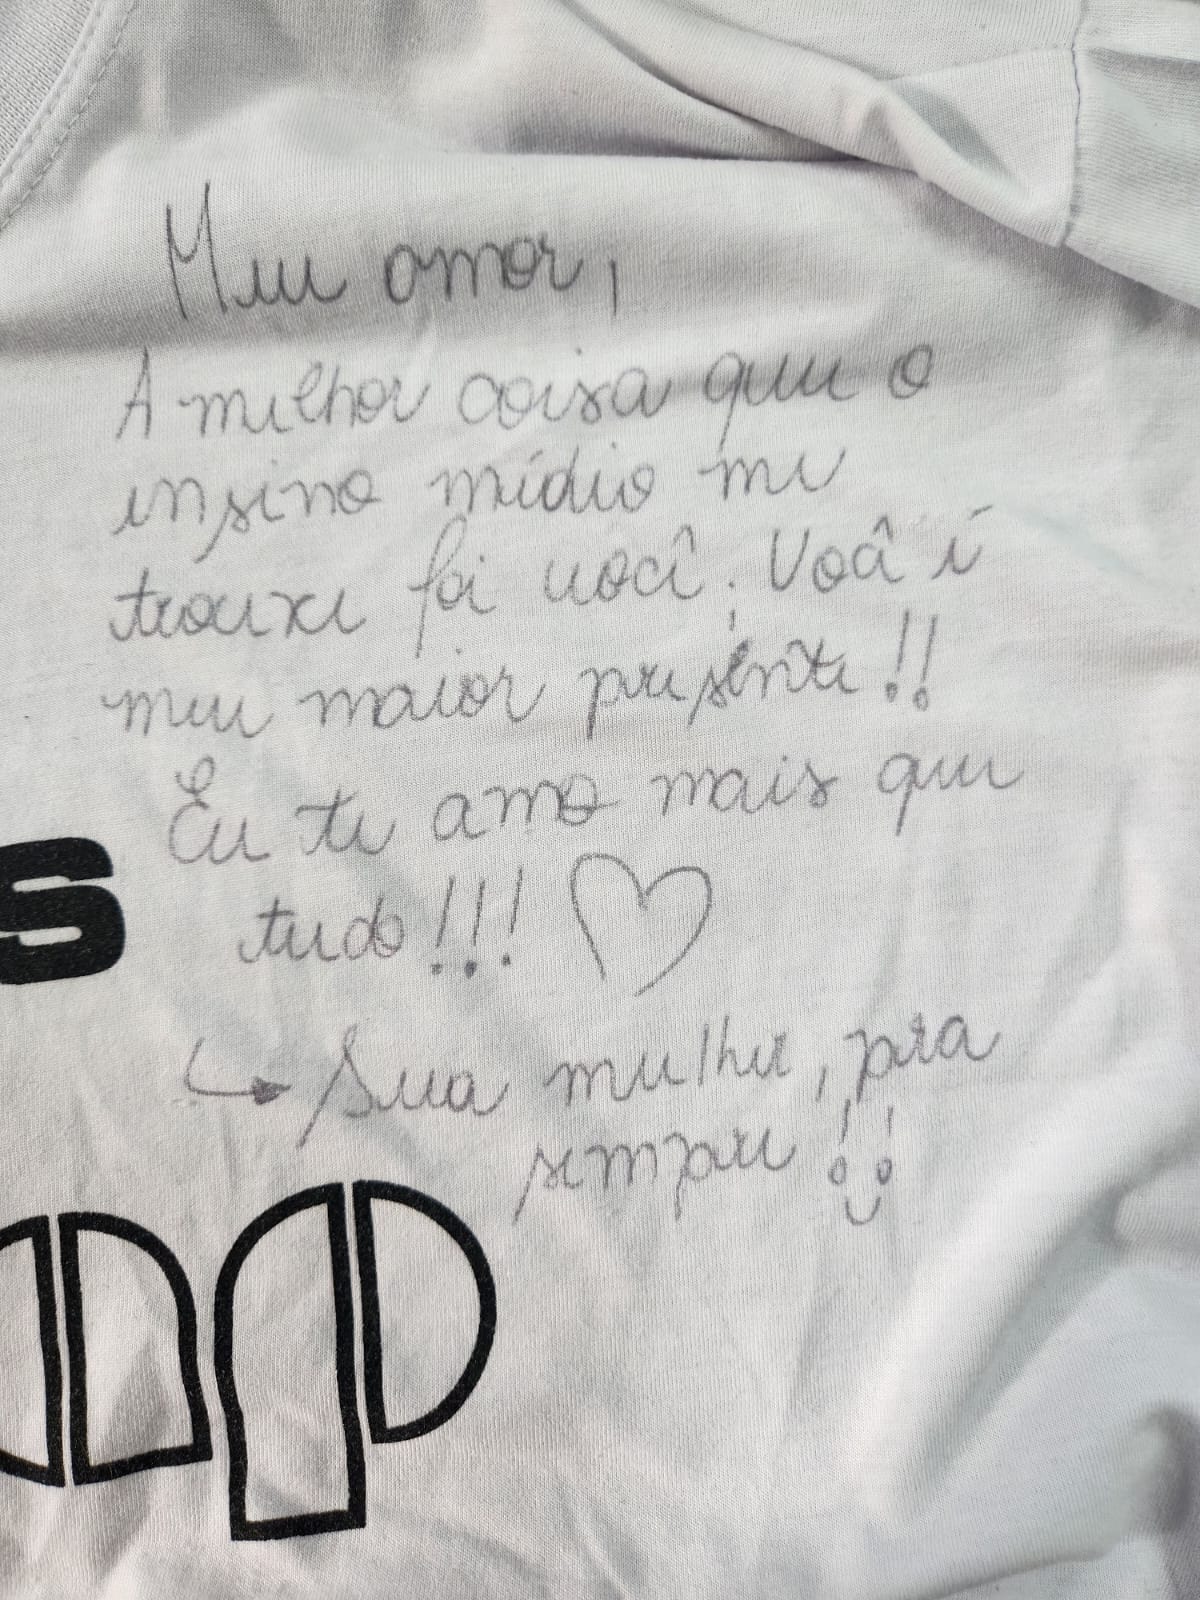 Meu amor,
A melhor coisa que o
ensino médio me
trouxe foi você. Você é
meu maior presente!!
Eu te amo mais que
tudo!!! ♡
S
↳ Sua mulher, pra
sempre!!